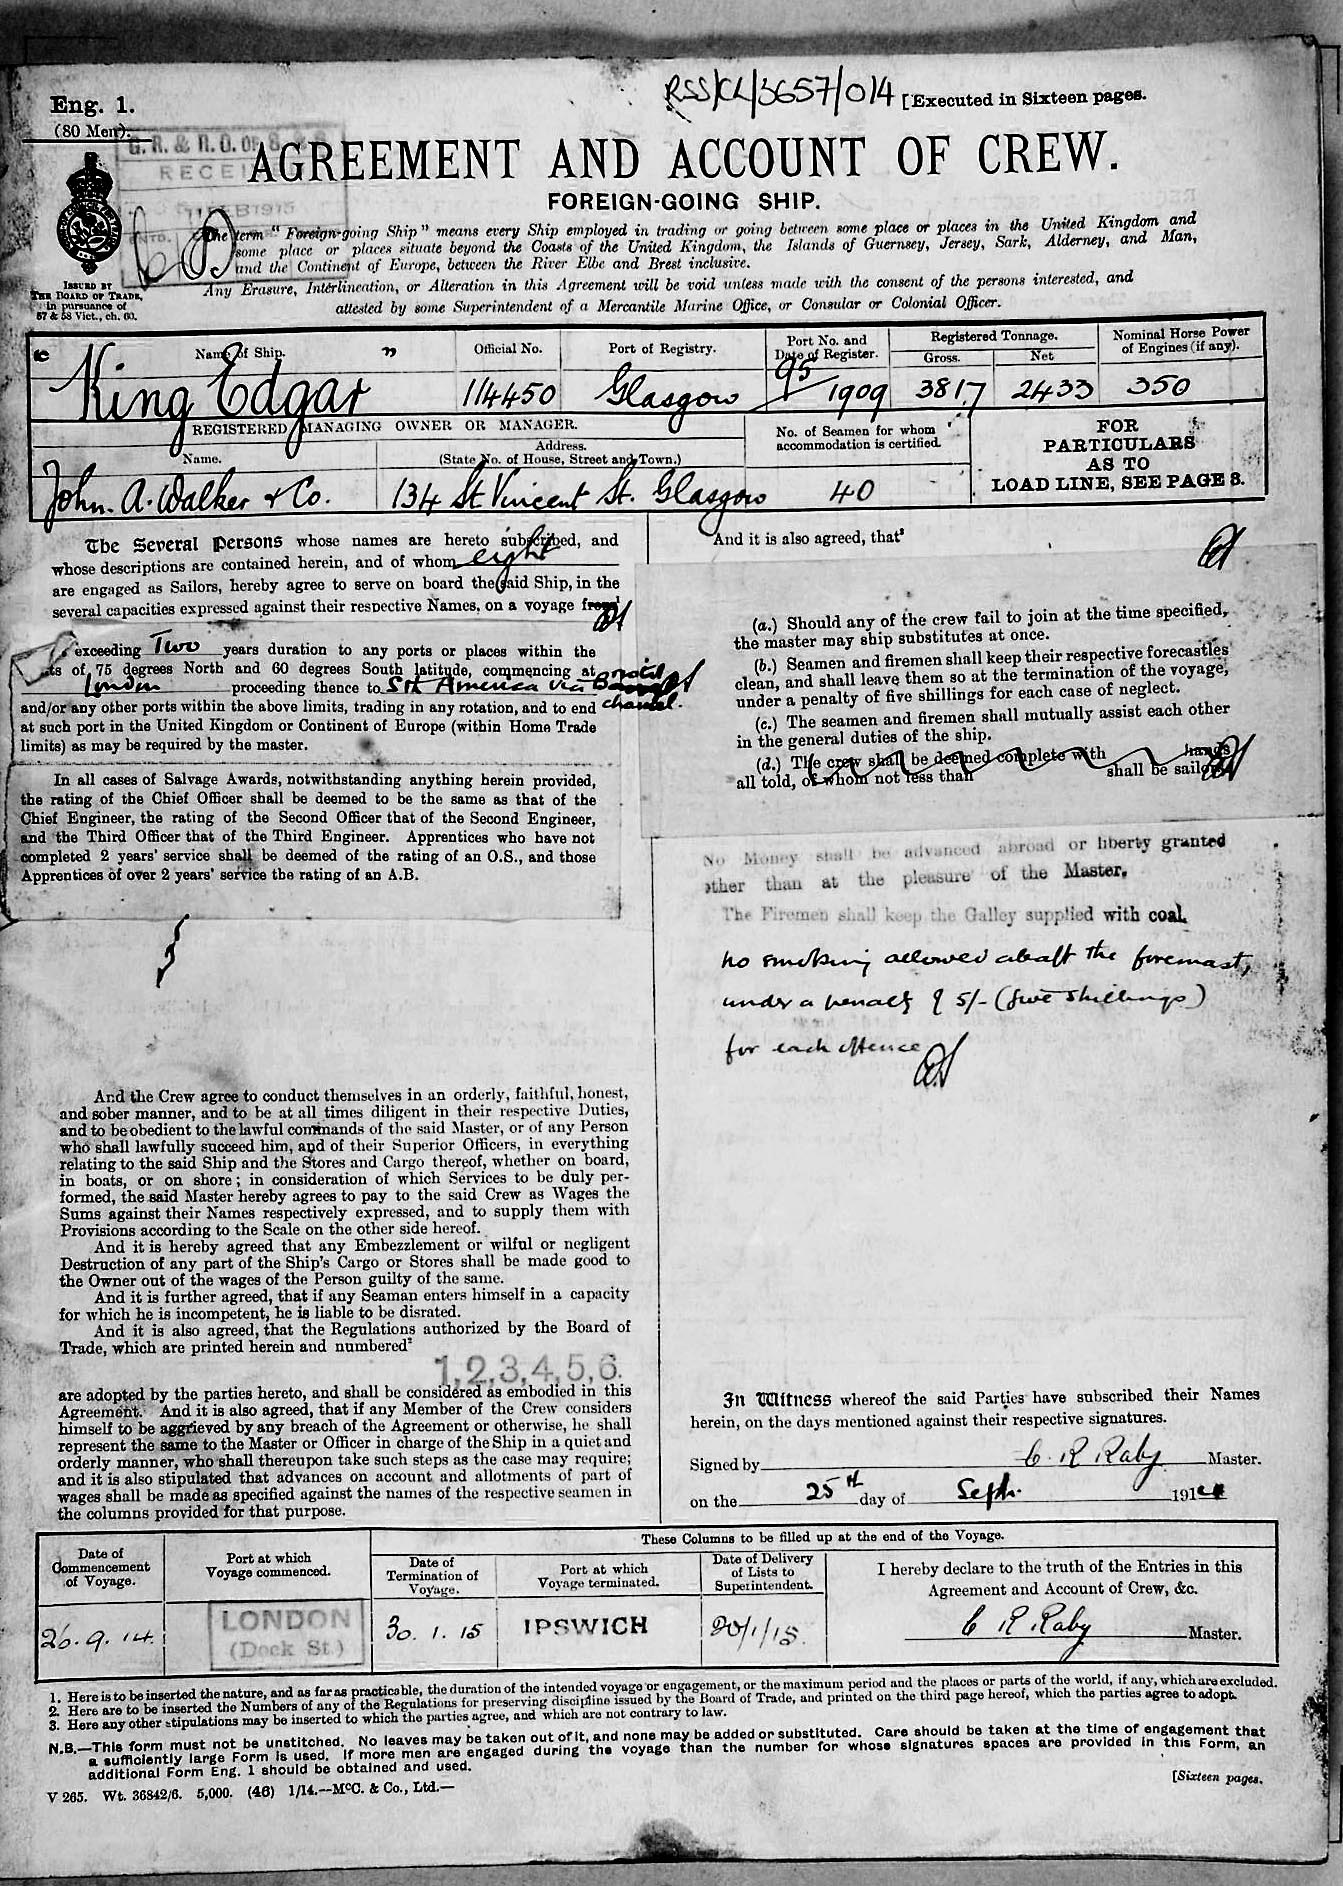 Eng. 1.
(80 Men).
RSS/CL/3657/014
[Executed in Sixteen pages.
G. R. & R. O. OF S. & S.
RECEI
FEB 1915
AGREEMENT AND ACCOUNT OF CREW.
FOREIGN-GOING SHIP.
The term "Foreign-going Ship" means every Ship employed in trading or going between some place or places in the United Kingdom and
some place or places situate beyond the Coasts of the United Kingdom, the Islands of Guernsey, Jersey, Sark, Alderney, and Man,
and the Continent of Europe, between the River Elbe and Brest inclusive.
Any Erasure, Interlineation, or Alteration in this Agreement will be void unless made with the consent of the persons interested, and
attested by some Superintendent of a Mercantile Marine Office, or Consular or Colonial Officer.
ISSUED BY
THE BOARD OF TRADE,
in pursuance of
57 & 58 Vict., ch. 60.
Name of Ship.
Official No.
Port of Registry.
Port No. and
Date of Register.
Registered Tonnage.
Gross.
Net
Nominal Horse Power
of Engines (if any).
King Edgar
114450
Glasgow
95/1909
3817
2433
350
REGISTERED MANAGING OWNER OR MANAGER.
Name.
Address.
(State No. of House, Street and Town.)
No. of Seamen for whom
accommodation is certified.
FOR
PARTICULARS
AS TO
LOAD LINE, SEE PAGE 3.
John. A. Walker & Co.
134 St Vincent St. Glasgow
40
The Several Persons whose names are hereto subscribed, and
whose descriptions are contained herein, and of whom eight
are engaged as Sailors, hereby agree to serve on board the said Ship, in the
several capacities expressed against their respective Names, on a voyage from
exceeding Two years duration to any ports or places within the
of 75 degrees North and 60 degrees South latitude, commencing at
London proceeding thence to Sth America via Bristol
channel.
and/or any other ports within the above limits, trading in any rotation, and to end
at such port in the United Kingdom or Continent of Europe (within Home Trade
limits) as may be required by the master.
In all cases of Salvage Awards, notwithstanding anything herein provided,
the rating of the Chief Officer shall be deemed to be the same as that of the
Chief Engineer, the rating of the Second Officer that of the Second Engineer,
and the Third Officer that of the Third Engineer. Apprentices who have not
completed 2 years' service shall be deemed of the rating of an O.S., and those
Apprentices of over 2 years' service the rating of an A.B.
And the Crew agree to conduct themselves in an orderly, faithful, honest,
and sober manner, and to be at all times diligent in their respective Duties,
and to be obedient to the lawful commands of the said Master, or of any Person
who shall lawfully succeed him, and of their Superior Officers, in everything
relating to the said Ship and the Stores and Cargo thereof, whether on board,
in boats, or on shore; in consideration of which Services to be duly per-
formed, the said Master hereby agrees to pay to the said Crew as Wages the
Sums against their Names respectively expressed, and to supply them with
Provisions according to the Scale on the other side hereof.
And it is hereby agreed that any Embezzlement or wilful or negligent
Destruction of any part of the Ship's Cargo or Stores shall be made good to
the Owner out of the wages of the Person guilty of the same.
And it is further agreed, that if any Seaman enters himself in a capacity
for which he is incompetent, he is liable to be disrated.
And it is also agreed, that the Regulations authorized by the Board of
Trade, which are printed herein and numbered²
1,2,3,4,5,6.
are adopted by the parties hereto, and shall be considered as embodied in this
Agreement. And it is also agreed, that if any Member of the Crew considers
himself to be aggrieved by any breach of the Agreement or otherwise, he shall
represent the same to the Master or Officer in charge of the Ship in a quiet and
orderly manner, who shall thereupon take such steps as the case may require;
and it is also stipulated that advances on account and allotments of part of
wages shall be made as specified against the names of the respective seamen in
the columns provided for that purpose.
And it is also agreed, that³
(a.) Should any of the crew fail to join at the time specified,
the master may ship substitutes at once.
(b.) Seamen and firemen shall keep their respective forecastles
clean, and shall leave them so at the termination of the voyage,
under a penalty of five shillings for each case of neglect.
(c.) The seamen and firemen shall mutually assist each other
in the general duties of the ship.
(d.) The crew shall be deemed complete with hands
all told, of whom not less than shall be sailors
No Money shall be advanced abroad or liberty granted
other than at the pleasure of the Master.
The Firemen shall keep the Galley supplied with coal.
No smoking allowed abaft the foremast,
under a penalty of 5/- (five shillings)
for each offence
In Witness whereof the said Parties have subscribed their Names
herein, on the days mentioned against their respective signatures.
Signed by C. R. Raby Master.
on the 25th day of Sept. 1914
Date of
Commencement
of Voyage.
Port at which
Voyage commenced.
These Columns to be filled up at the end of the Voyage.
Date of
Termination of
Voyage.
Port at which
Voyage terminated.
Date of Delivery
of Lists to
Superintendent.
I hereby declare to the truth of the Entries in this
Agreement and Account of Crew, &c.
26.9.14.
LONDON
(Dock St.)
30.1.15
IPSWICH
30/1/15.
C R Raby Master.
1. Here is to be inserted the nature, and as far as practicable, the duration of the intended voyage or engagement, or the maximum period and the places or parts of the world, if any, which are excluded.
2. Here are to be inserted the Numbers of any of the Regulations for preserving discipline issued by the Board of Trade, and printed on the third page hereof, which the parties agree to adopt.
3. Here any other stipulations may be inserted to which the parties agree, and which are not contrary to law.
N.B.—This form must not be unstitched. No leaves may be taken out of it, and none may be added or substituted. Care should be taken at the time of engagement that
a sufficiently large Form is used. If more men are engaged during the voyage than the number for whose signatures spaces are provided in this Form, an
additional Form Eng. 1 should be obtained and used.
V 265. Wt. 36842/6. 5,000. (46) 1/14.—McC. & Co., Ltd.—
[Sixteen pages.